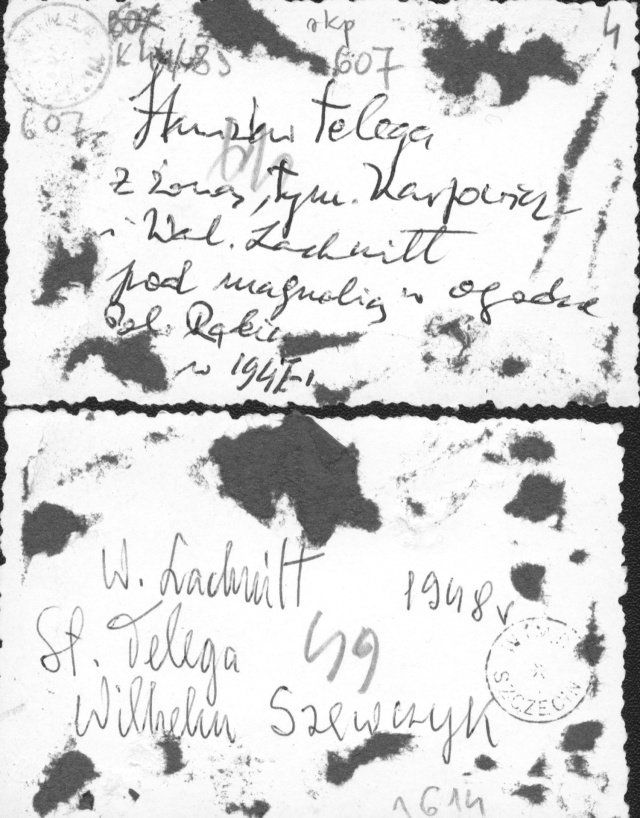 607
rkp
607
4
607
Stanisław Telega
z żoną, Tym. Karpowicz
i Wal. Lachnitt
pod magnolią w ogrodzie
w 1947 r.
W. Lachnitt
1948 r
St. Telega
49
Wilhelm Szewczyk
SZCZECIN
1614